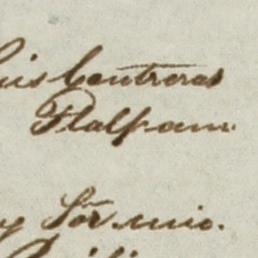 uis Contreras
Tlalpam.
y Sōr. mio.